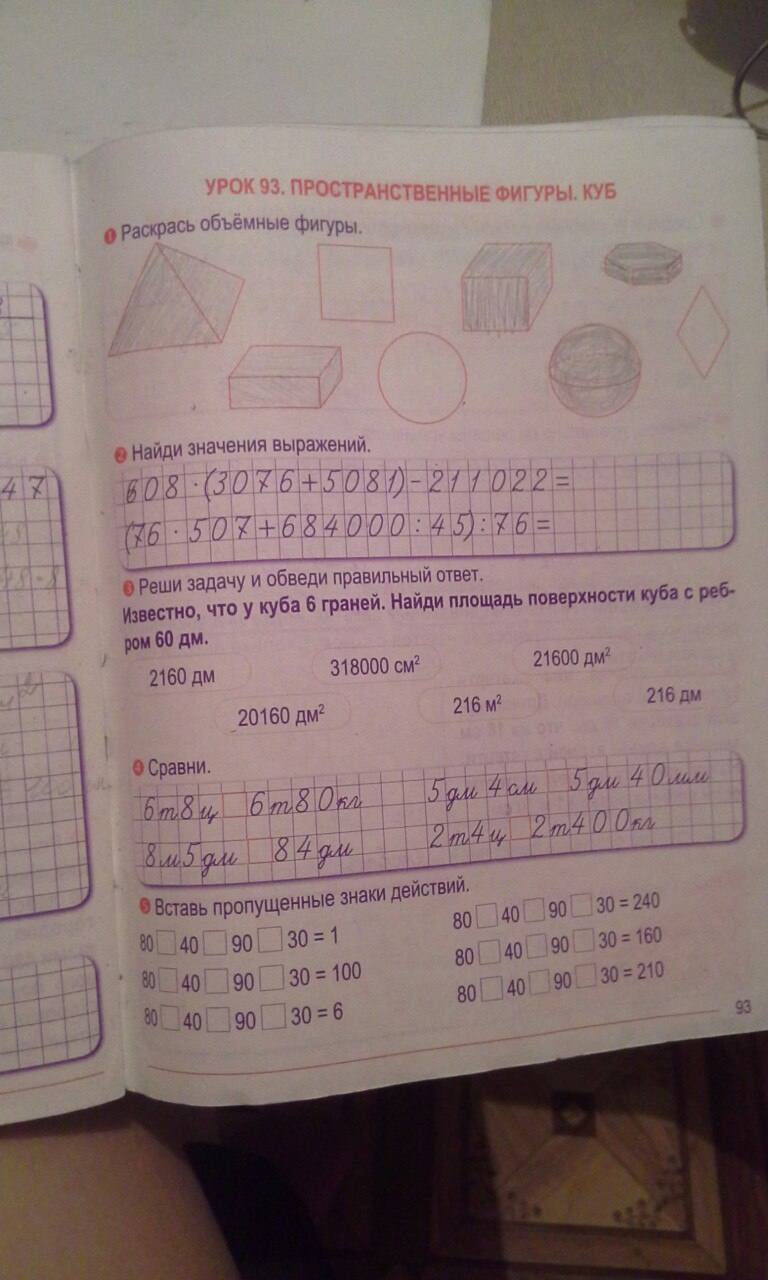 УРОК 93. ПРОСТРАНСТВЕННЫЕ ФИГУРЫ. КУБ
1 Раскрась объёмные фигуры.
2 Найди значения выражений.
608 · (3076 + 5081) - 211022 =
(76 · 507 + 684000 : 45) : 76 =
3 Реши задачу и обведи правильный ответ.
Известно, что у куба 6 граней. Найди площадь поверхности куба с реб-
ром 60 дм.
2160 дм 318000 см² 21600 дм²
20160 дм² 216 м² 216 дм
4 Сравни.
6т8ц □ 6т80кг 5дм4см □ 5дм40мм
8м5дм □ 84дм 2т4ц □ 2т400кг
5 Вставь пропущенные знаки действий.
80 □ 40 □ 90 □ 30 = 1 80 □ 40 □ 90 □ 30 = 240
80 □ 40 □ 90 □ 30 = 100 80 □ 40 □ 90 □ 30 = 160
80 □ 40 □ 90 □ 30 = 6 80 □ 40 □ 90 □ 30 = 210
93
47